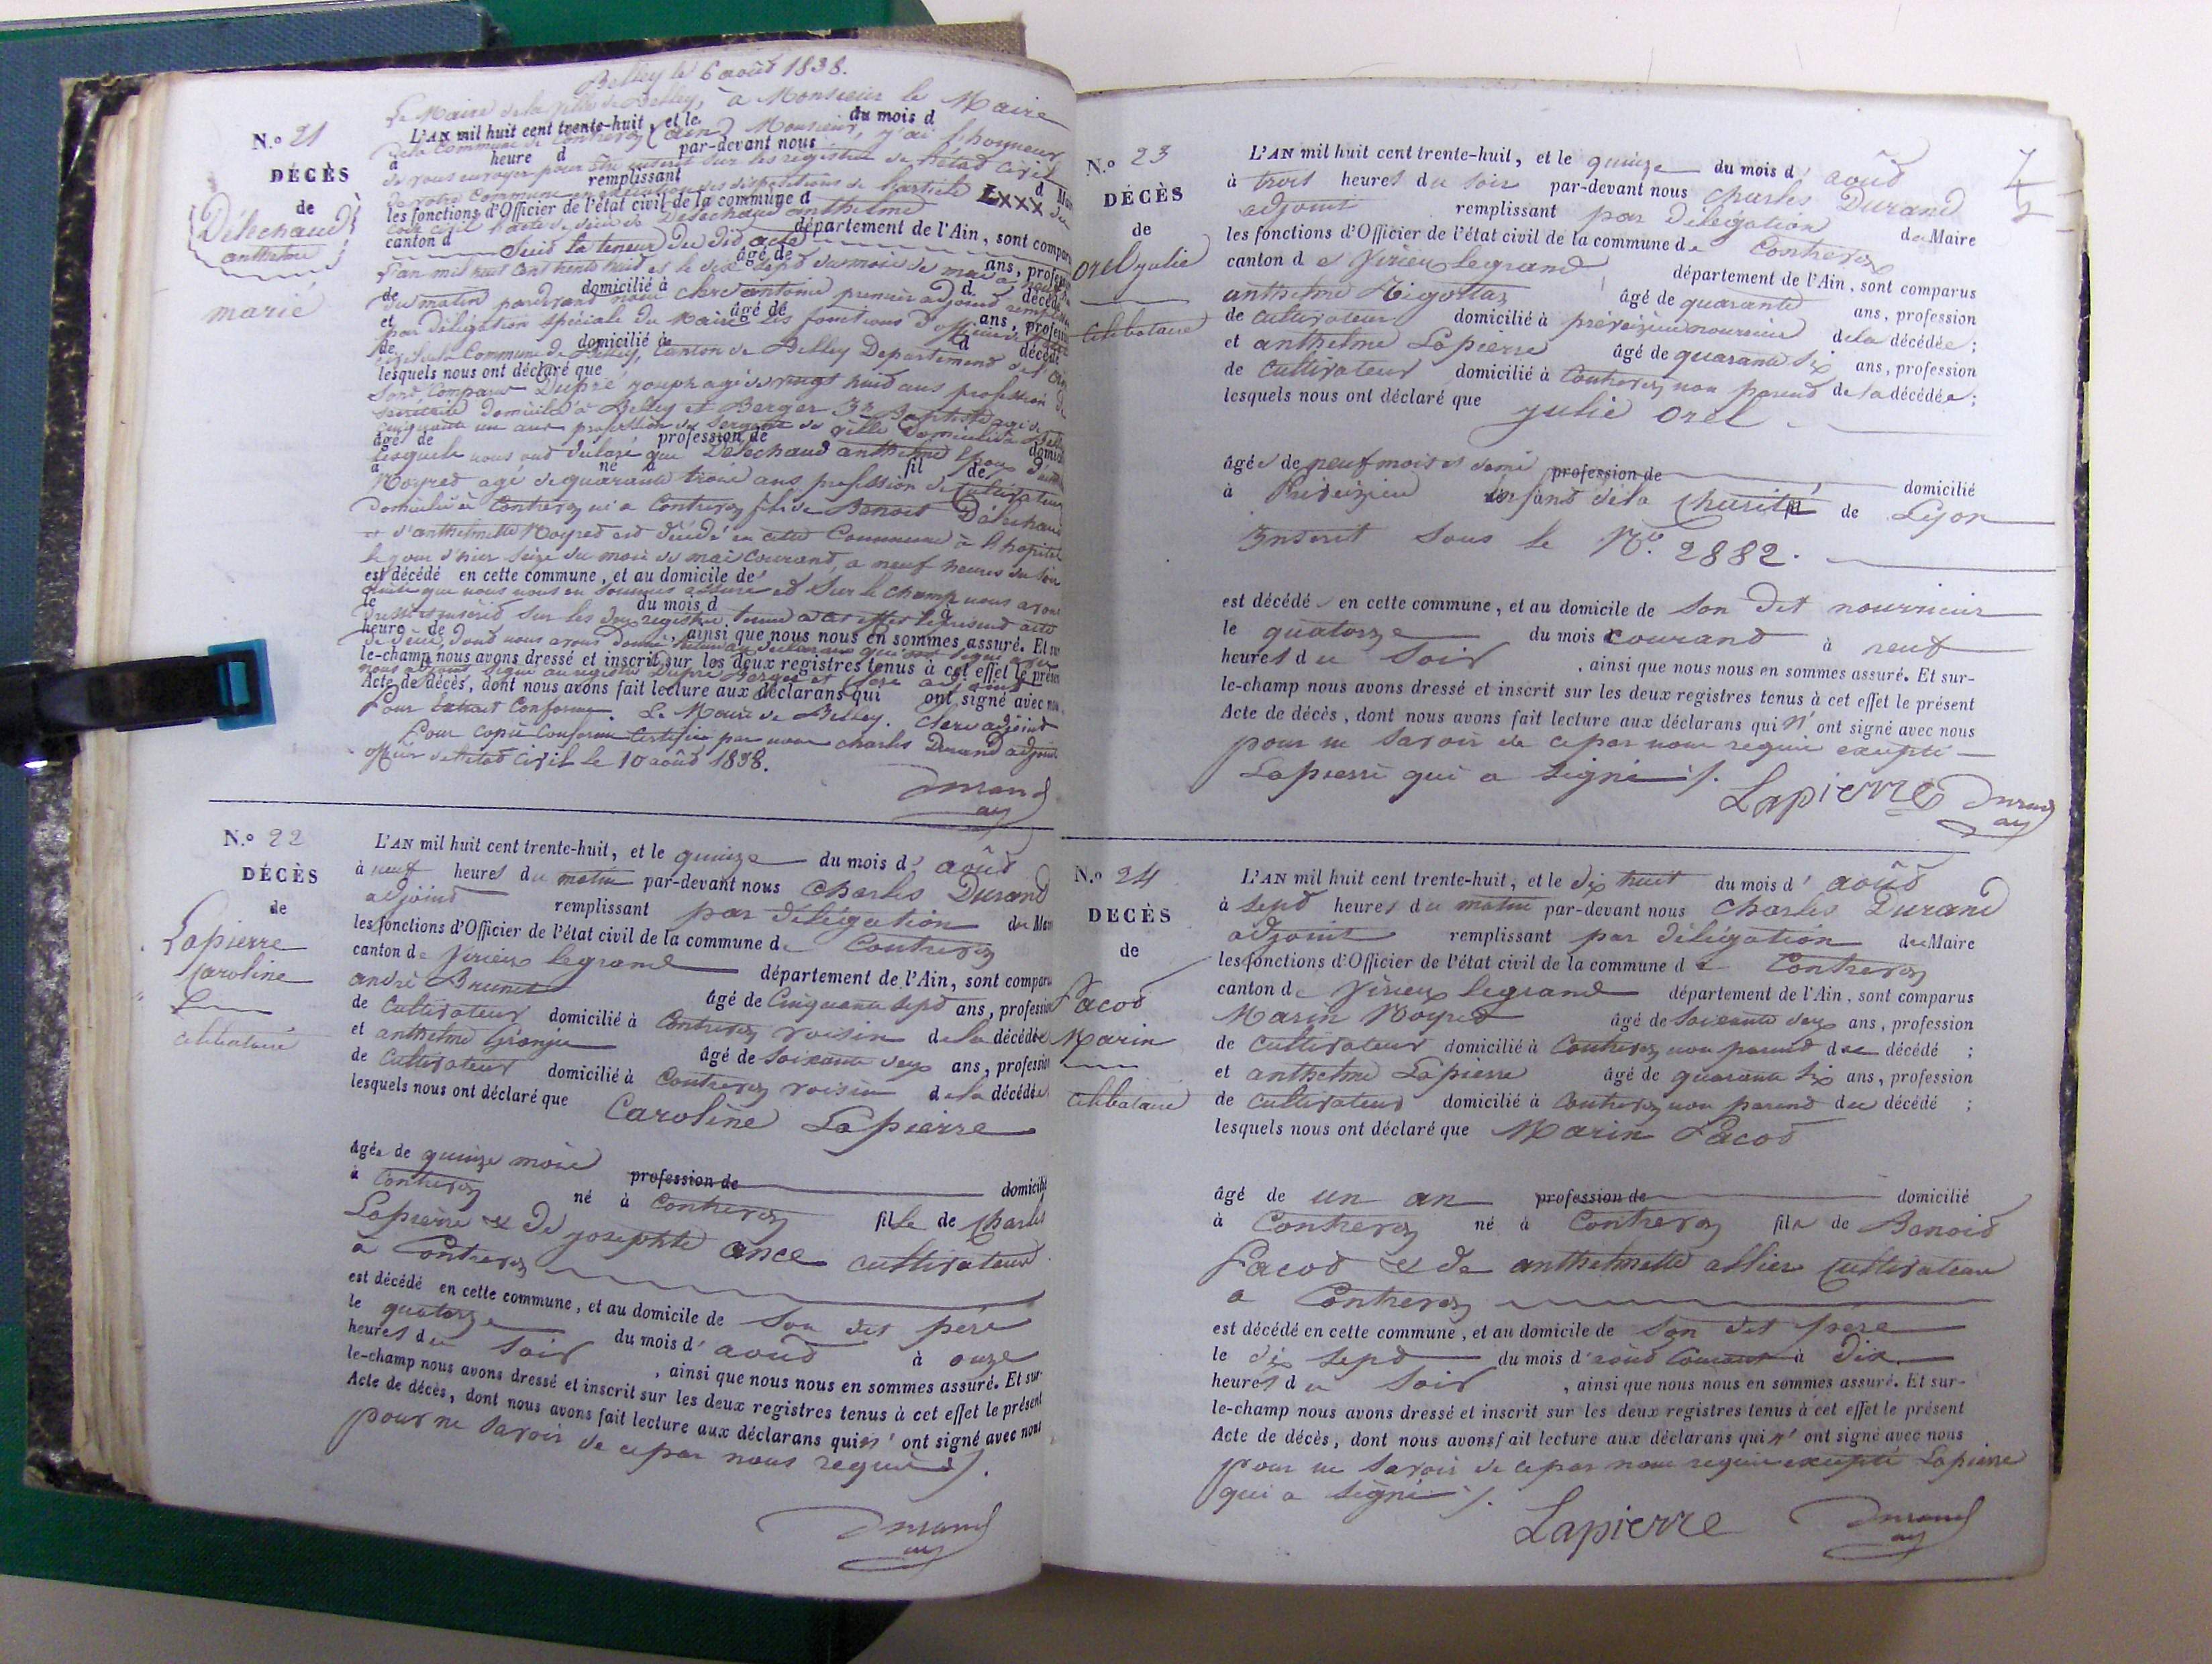 Belley le 6 août 1838.
Le Maire de la ville de Belley, à Monsieur le Maire
N.º 21
L'AN mil huit cent trente-huit, et le du mois d
de la Commune de Contrevoz (ain) Monsieur, j'ai l'honneur
à heure d par-devant nous
de vous envoyer pour être inscrit sur les registres de l'état civil
DÉCÈS
remplissant
de votre Commune en exécution des dispositions de l'article LXXX du
de
les fonctions d'Officier de l'état civil de la commune d
Code civil l'acte de décès de Délechaud anthelme
Délechaud
anthelme
canton d département de l'Ain, sont comparus
Suit la teneur du dit acte
âgé de ans, profession
L'an mil huit cent trente huit et le dix sept du mois de mai à
marié
de domicilié à d décédé
du matin pardevant nous Clerc antoine premier adjoint
et âgé de ans, profession
par délégation spéciale du Maire les fonctions d'officier de l'état
de domicilié à d décédé
civil de la Commune de Belley, Canton de Belley Departement de l'Ain
lesquels nous ont déclaré que
Sont Comparus Dupré joseph agé de vingt huit ans profession de
secretaire domicilié à Belley et Berger Jn Baptiste agé de
cinquante un ans profession de Sergent de ville domicilié à Belley
âgé de profession de domicilié
lesquels nous ont déclaré que Délechaud anthelme Epoux
à né à fil de
Moyret agé de quarante trois ans profession de Cultivateur
Domicilié à Contrevoz né à Contrevoz fils de Benoit Délechaud
et d'anthelmette Moyret est décédé en cette Commune à l'hopital
le jour d'hier seize du mois de mai Courant, à neuf heures du soir
est décédé en cette commune, et au domicile de
ainsi que nous nous en sommes assuré et sur le champ nous avons
le du mois d à
dressé et inscrit sur les deux registres tenus à cet effet le présent acte
heure de , ainsi que nous nous en sommes assuré. Et sur-
de décès, dont nous avons donné lecture aux déclarans qui ont signé avec
le-champ nous avons dressé et inscrit sur les deux registres tenus à cet effet le présent
nous adjoint signé au registre Dupré Berger et Clerc adjoint
Acte de décès, dont nous avons fait lecture aux déclarans qui ont signé avec nous
Pour Extrait Conforme. Le Maire de Belley. Clerc adjoint
Pour copie Conforme Certifiée par nous charles Durand adjoint
officier de l'état civil le 10 août 1838.
Durand
adj
N.º 22
DÉCÈS
de
Lapierre
Caroline
célibataire
L'AN mil huit cent trente-huit, et le quinze du mois d' août
à neuf heures du matin par-devant nous Charles Durand
adjoint remplissant par délégation du Maire
les fonctions d'Officier de l'état civil de la commune de Contrevoz
canton de Virieu legrand département de l'Ain, sont comparus
andré Brunet âgé de Cinquante sept ans, profession
de Cultivateur domicilié à Contrevoz voisin de la décédée
et anthelme Grangie âgé de soixante deux ans, profession
de Cultivateur domicilié à Contrevoz voisin de la décédée
lesquels nous ont déclaré que Caroline Lapierre
âgée de quinze mois profession de domicilié
à Contrevoz né à Contrevoz fille de Charles
Lapierre & de josephte ance cultivateurs
à Contrevoz
est décédé en cette commune, et au domicile de son dit père
le quatorze du mois d' août à onze
heures du soir , ainsi que nous nous en sommes assuré. Et sur-
le-champ nous avons dressé et inscrit sur les deux registres tenus à cet effet le présent
Acte de décès, dont nous avons fait lecture aux déclarans qui n' ont signé avec nous
pour ne savoir de ce par nous requis ./.
Durand
adj
N.º 23
DÉCÈS
de
Orel julie
célibataire
L'AN mil huit cent trente-huit, et le quinze du mois d' août
à trois heures du soir par-devant nous Charles Durand
adjoint remplissant par délégation du Maire
les fonctions d'Officier de l'état civil de la commune de Contrevoz
canton de Virieu legrand département de l'Ain, sont comparus
anthelme Rigottaz âgé de quarante ans, profession
de cultivateur domicilié à préveizieu nourricier de la décédée ;
et anthelme Lapierre âgé de quarante six ans, profession
de Cultivateur domicilié à Contrevoz non parent de la décédée ;
lesquels nous ont déclaré que julie Orel
âgée de neuf mois et demi profession de domicilié
à Préveizieu Enfant de la Charité de Lyon
Inscrit sous le N.º 2882.
est décédé en cette commune, et au domicile de son dit nourricier
le quatorze du mois courant à neuf
heures du soir , ainsi que nous nous en sommes assuré. Et sur-
le-champ nous avons dressé et inscrit sur les deux registres tenus à cet effet le présent
Acte de décès, dont nous avons fait lecture aux déclarans qui n' ont signé avec nous
pour ne savoir de ce par nous requis excepté
Lapierre qui a signé ./.
Lapierre Durand
adj
N.º 24
DÉCÈS
de
Pacod
Marin
célibataire
L'AN mil huit cent trente-huit, et le dix huit du mois d' août
à sept heures du matin par-devant nous Charles Durand
adjoint remplissant par délégation du Maire
les fonctions d'Officier de l'état civil de la commune de Contrevoz
canton de Virieu legrand département de l'Ain, sont comparus
Marin Moyret âgé de soixante deux ans, profession
de Cultivateur domicilié à Contrevoz non parent du décédé ;
et anthelme Lapierre âgé de quarante six ans, profession
de Cultivateur domicilié à Contrevoz non parent du décédé ;
lesquels nous ont déclaré que Marin Pacod
âgé de un an profession de domicilié
à Contrevoz né à Contrevoz fils de Benoit
Pacod & de anthelmette allier cultivateurs
à Contrevoz
est décédé en cette commune, et au domicile de son dit père
le dix sept du mois d'août courant à dix
heures du soir , ainsi que nous nous en sommes assuré. Et sur-
le-champ nous avons dressé et inscrit sur les deux registres tenus à cet effet le présent
Acte de décès, dont nous avons fait lecture aux déclarans qui n' ont signé avec nous
pour ne savoir de ce par nous requis excepté Lapierre
qui a signé ./.
Lapierre Durand
adj